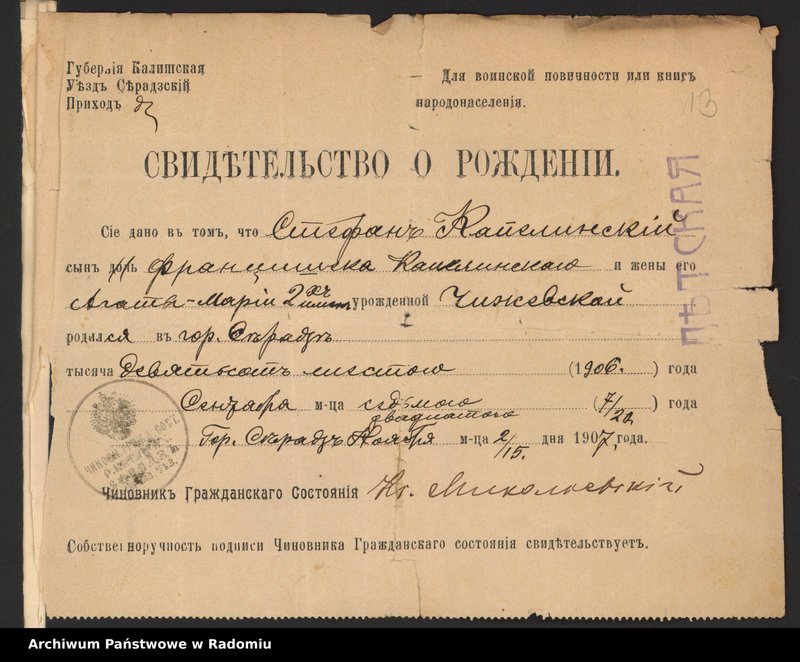 Губернія Калишская
Уѣздъ Сѣрадзскій
Приходъ
Для воинской повичности или книгъ
народонаселенія.
13
СВИДѢТЕЛЬСТВО О РОЖДЕНІИ.
ДѢТСКАЯ
Сіе дано въ томъ, что Стефанъ Капелинскій
сынъ дочь Францишека Капелинскаго и жены его
Агаты-Маріи 2 урожденной Чижевской
родился въ гор. Сѣрадзѣ
тысяча девятьсотъ шестого (1906.) года
Сентября м-ца седьмого двадцатого (7/20) года
Гор. Сѣрадзъ Ноября м-ца 2/15. дня 1907. года.
Чиновникъ Гражданскаго Состоянія Кс.
Собственноручность подписи Чиновника Гражданскаго состоянія свидѣтельствуетъ.
Archiwum Państwowe w Radomiu